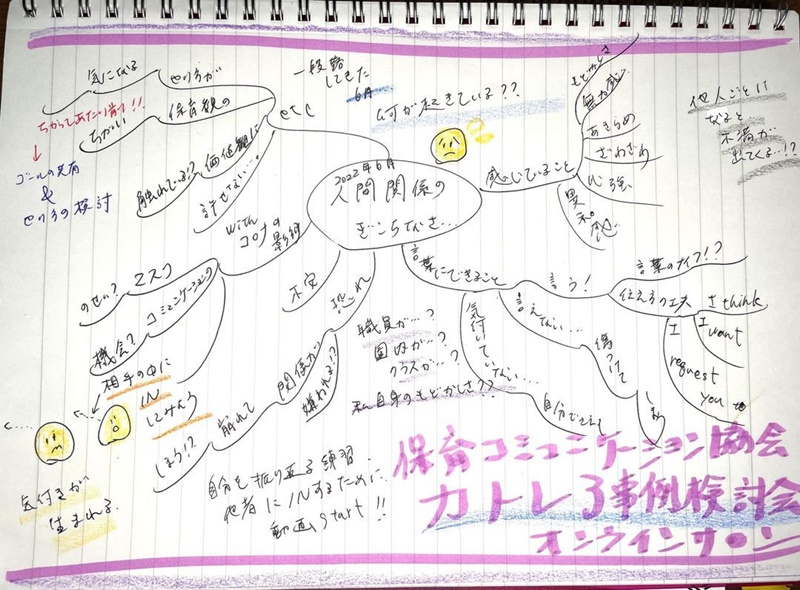 気になる
やり方が
保育観の
ちがい
ちがってあたり前!!
↓
ゴールの共有
&
やり方の検討
etc
価値観に
触れてる!?
許せない…。
一段落
してきた
6月
何が起きている??
感じていること
もどかしさ
無力感
あきらめ
ざわざわ
心強
異和感
他人ごとに
なると
不満が
出てくる…!?
2022年6月
人間関係の
ぎこちなさ…
with
コロナの
影響
コミュニケーションの
機会?
マスク
のせい?
相手の中に
IN
してみんろ
気付きが
生まれる
不安
恐れ
関係が
崩れて
しまう!?
嫌われる!?
自分を振り返る練習.
他者にINするために
動画start!!
言葉にできること
言う!
言葉のナイフ!?
伝える工夫
I think
I want
I
request
you to
言えない…
傷つけて
しまう
気付いていない…
自分でさえも
職員が…?
園内が…?
クラスが…?
私自身のもどかしさ??
保育コミュニケーション協会
カトレ3事例検討会
オンラインサロン